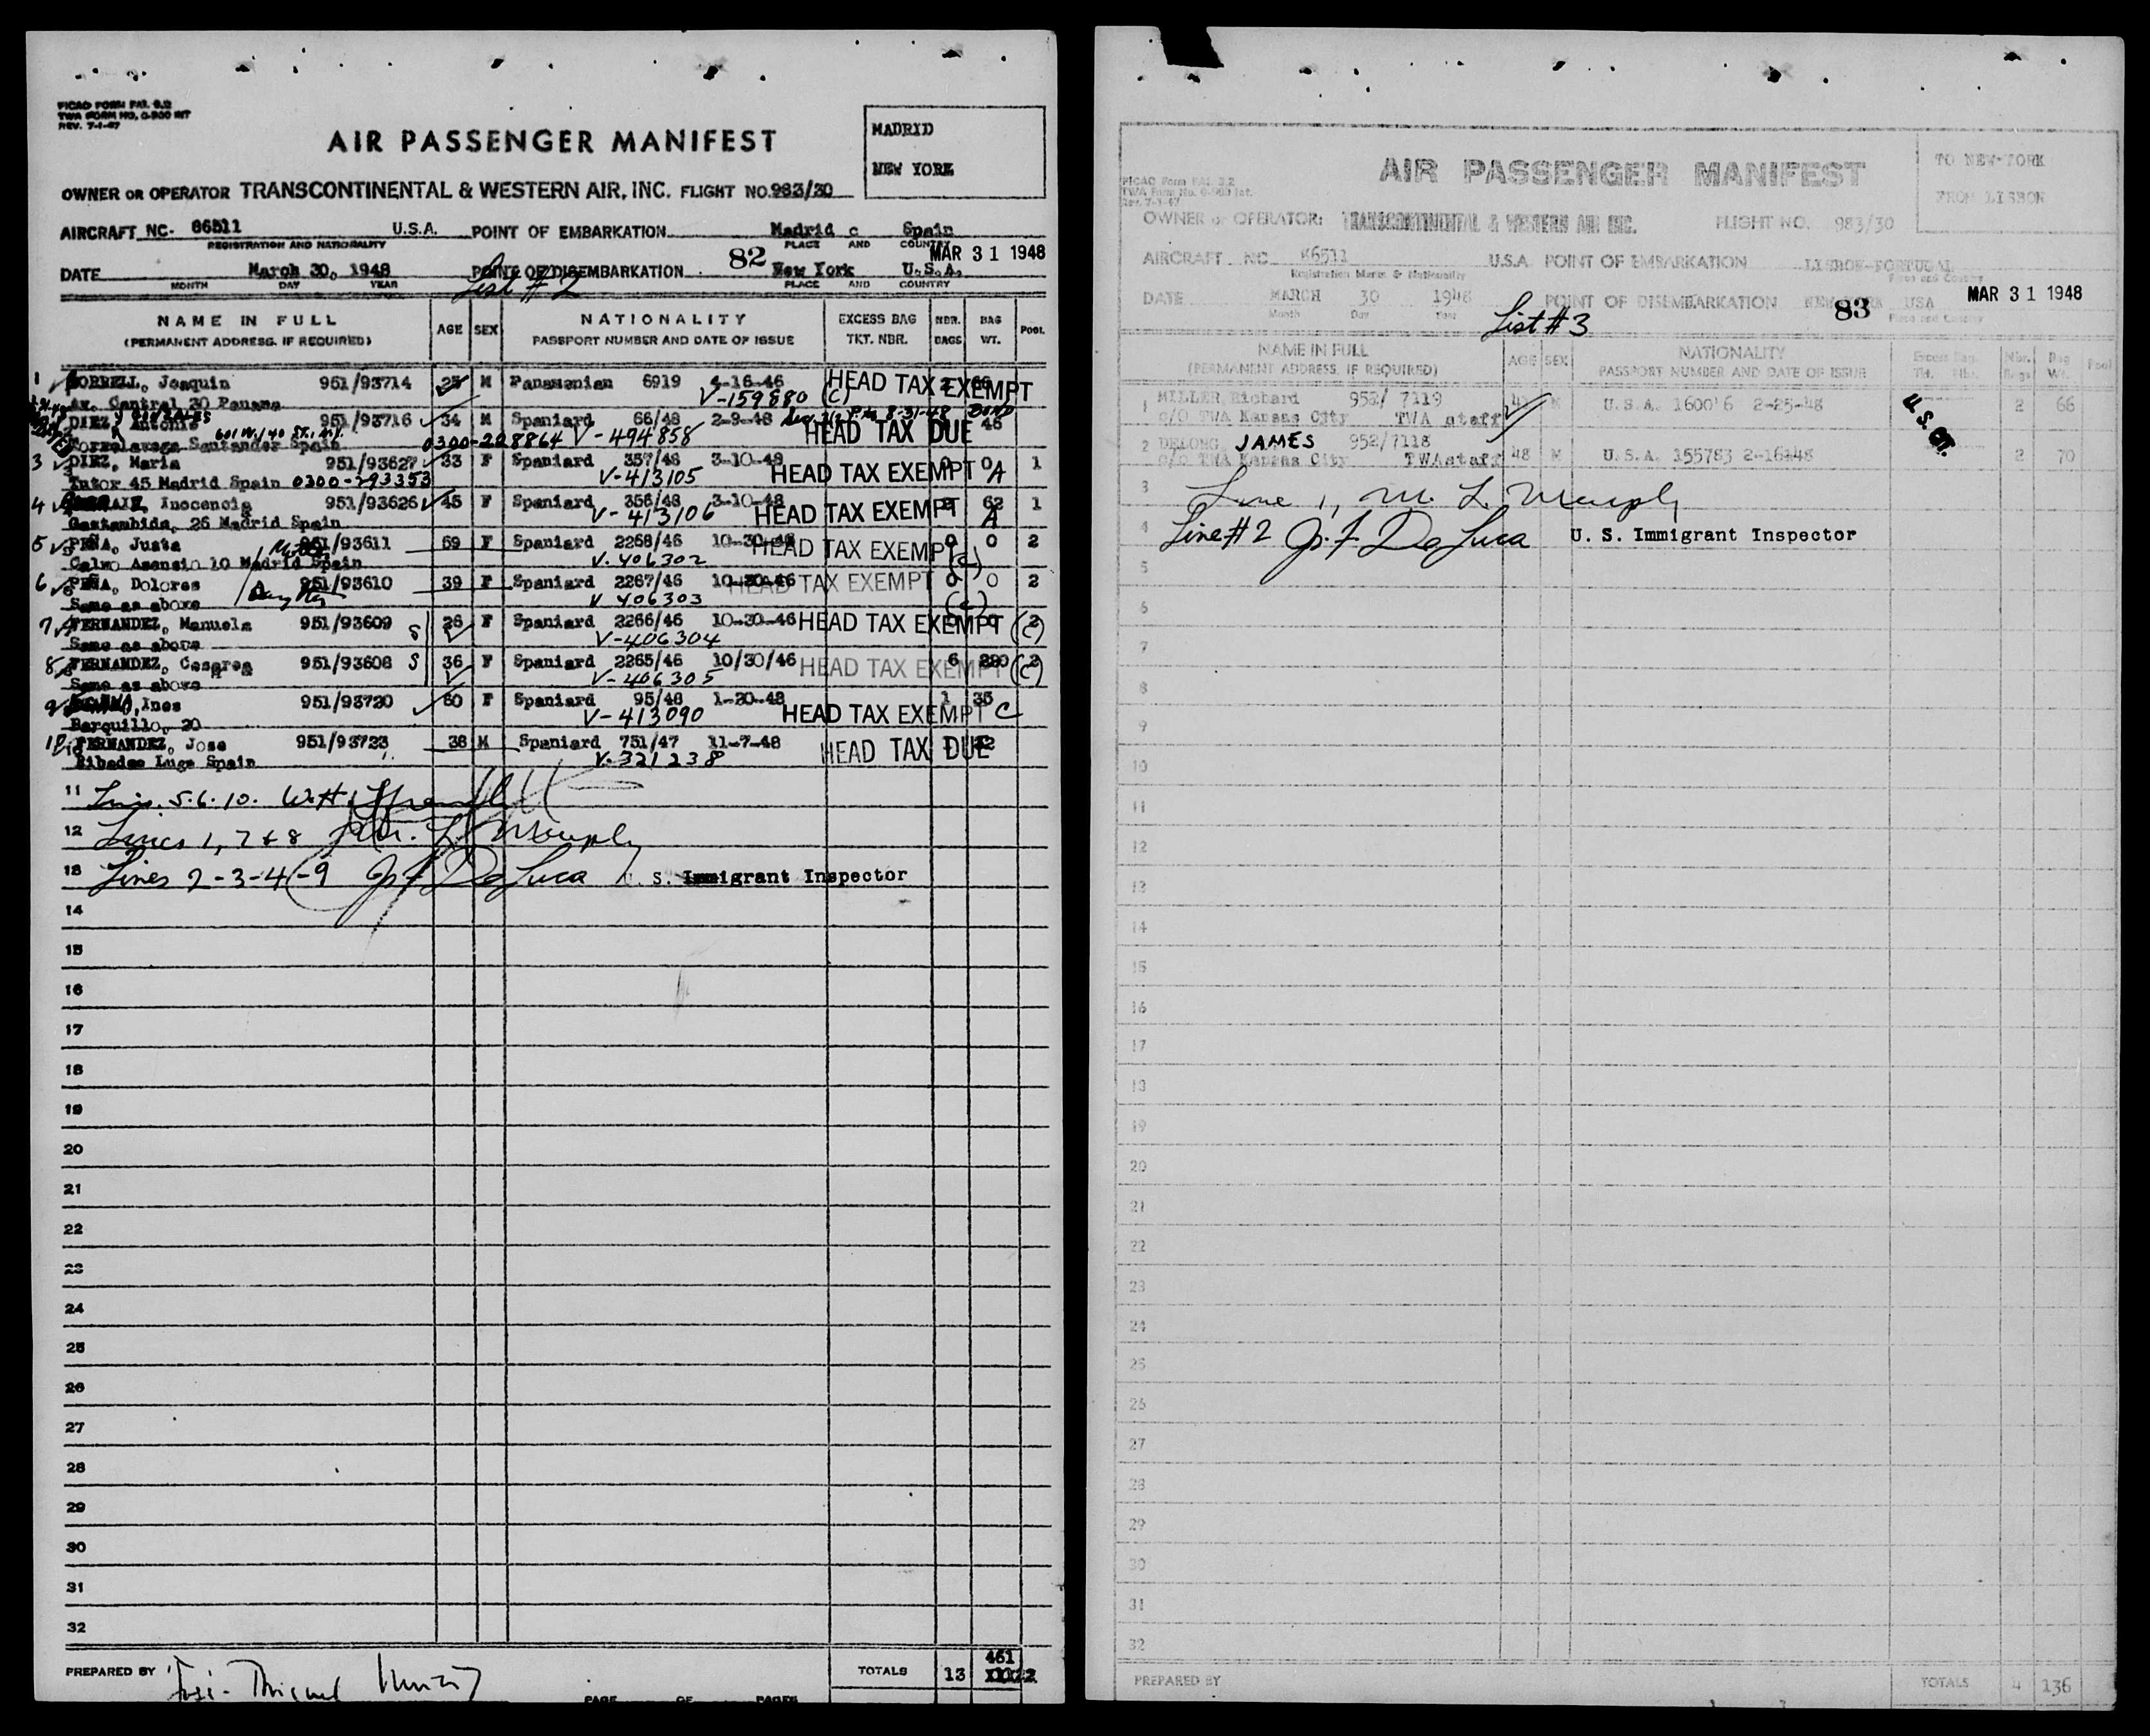 PICAO FORM PAI. 9.2
TWA FORM NO. 0-900 INT
REV. 7-1-47
MADRID
NEW YORK
AIR PASSENGER MANIFEST
OWNER OR OPERATOR TRANSCONTINENTAL & WESTERN AIR, INC. FLIGHT NO. 983/30
AIRCRAFT NC- 86511 U.S.A. POINT OF EMBARKATION Madrid Spain
REGISTRATION AND NATIONALITY PLACE AND COUNTRY
82 MAR 31 1948
DATE March 30, 1948 POINT OF DISEMBARKATION New York U.S.A.
MONTH DAY YEAR PLACE AND COUNTRY
List # 2
NAME IN FULL AGE SEX NATIONALITY EXCESS BAG NBR. BAG POOL
(PERMANENT ADDRESS, IF REQUIRED) PASSPORT NUMBER AND DATE OF ISSUE TKT. NBR. BAGS WT.
1 Joaquin 951/93714 25 M Panamenian 6919 4-16-46 HEAD TAX EXEMPT
Av. Central 30 Panama V-159880 (C)
DIEZ, Antonio 951/93716 34 M Spaniard 66/48 2-9-48 8-31-48 46
Torrelavega Santander Spain 601 W. 140 ST. N.Y. 0300-228864 V-494858 HEAD TAX DUE
3 DIEZ, Maria 951/93627 33 F Spaniard 357/48 3-10-48 0 0 1
Tutor 45 Madrid Spain 0300-293353 V-413105 HEAD TAX EXEMPT A
4 Inocencia 951/93626 45 F Spaniard 356/48 3-10-48 62 1
Gaztambide, 26 Madrid Spain V-413106 HEAD TAX EXEMPT A
5 PEÑA, Justa 951/93611 69 F Spaniard 2268/46 10-30-46 0 0 2
Calvo Asensio 10 Madrid Spain Mother V-406302 HEAD TAX EXEMPT (C)
6 PEÑA, Dolores 951/93610 39 F Spaniard 2267/46 10-30-46 0 0 2
Same as above V 406303 HEAD TAX EXEMPT (C)
7 FERNANDEZ, Manuela 951/93609 S 26 F Spaniard 2266/46 10-30-46 HEAD TAX EXEMPT 2 (C)
Same as above V-406304
8 FERNANDEZ, Cesarea 951/93608 S 36 F Spaniard 2265/46 10/30/46 HEAD TAX EXEMPT 6 2 (C)
Same as above V-406305
9 Ines 951/93720 60 F Spaniard 95/48 1-20-48 1 35
Barquillo, 20 V-413090 HEAD TAX EXEMPT C
10 FERNANDEZ, Jose 951/93723 38 M Spaniard 751/47 11-7-48 HEAD TAX DUE
Ribadeo Lugo Spain V-321238
11 Lines 5.6.10.
12 Lines 1, 7 & 8 M. L. Murphy
13 Lines 2-3-4-9 J. F. DeLuca U. S. Immigrant Inspector
14
15
16
17
18
19
20
21
22
23
24
25
26
27
28
29
30
31
32
PREPARED BY TOTALS 13 461
PAGE OF PAGES
AIR PASSENGER MANIFEST
TO NEW-YORK
FROM LISBON
PICAO Form PAI 9.2
OWNER or OPERATOR: TRANSCONTINENTAL & WESTERN AIR INC. FLIGHT NO. 983/30
AIRCRAFT NC 86511 U.S.A POINT OF EMBARKATION LISBON-PORTUGAL
Registration Marks & Nationality Place and Country
DATE MARCH 30 1948 POINT OF DISEMBARKATION NEW-YORK USA MAR 31 1948
Month Day Year 83 Place and Country
List # 3
NAME IN FULL AGE SEX NATIONALITY Excess Bag. Nbr. Bag Pool
(PERMANENT ADDRESS, IF REQUIRED) PASSPORT NUMBER AND DATE OF ISSUE Tkt. Nbr. Bags Wt.
1 MILLER, Richard 952/ 7119 M U.S.A. 2-25-48 2 66
c/O TWA Kansas City TWA staff
2 DELONG, JAMES 952/7118 48 M U.S.A. 155783 2-16-48 2 70
c/o TWA Kansas City TWA staff
3 Line 1, M. L. Murphy
4 Line #2 J. F. DeLuca U. S. Immigrant Inspector
5
6
7
8
9
10
11
12
13
14
15
16
17
18
19
20
21
22
23
24
25
26
27
28
29
30
31
32
PREPARED BY TOTALS 4 136